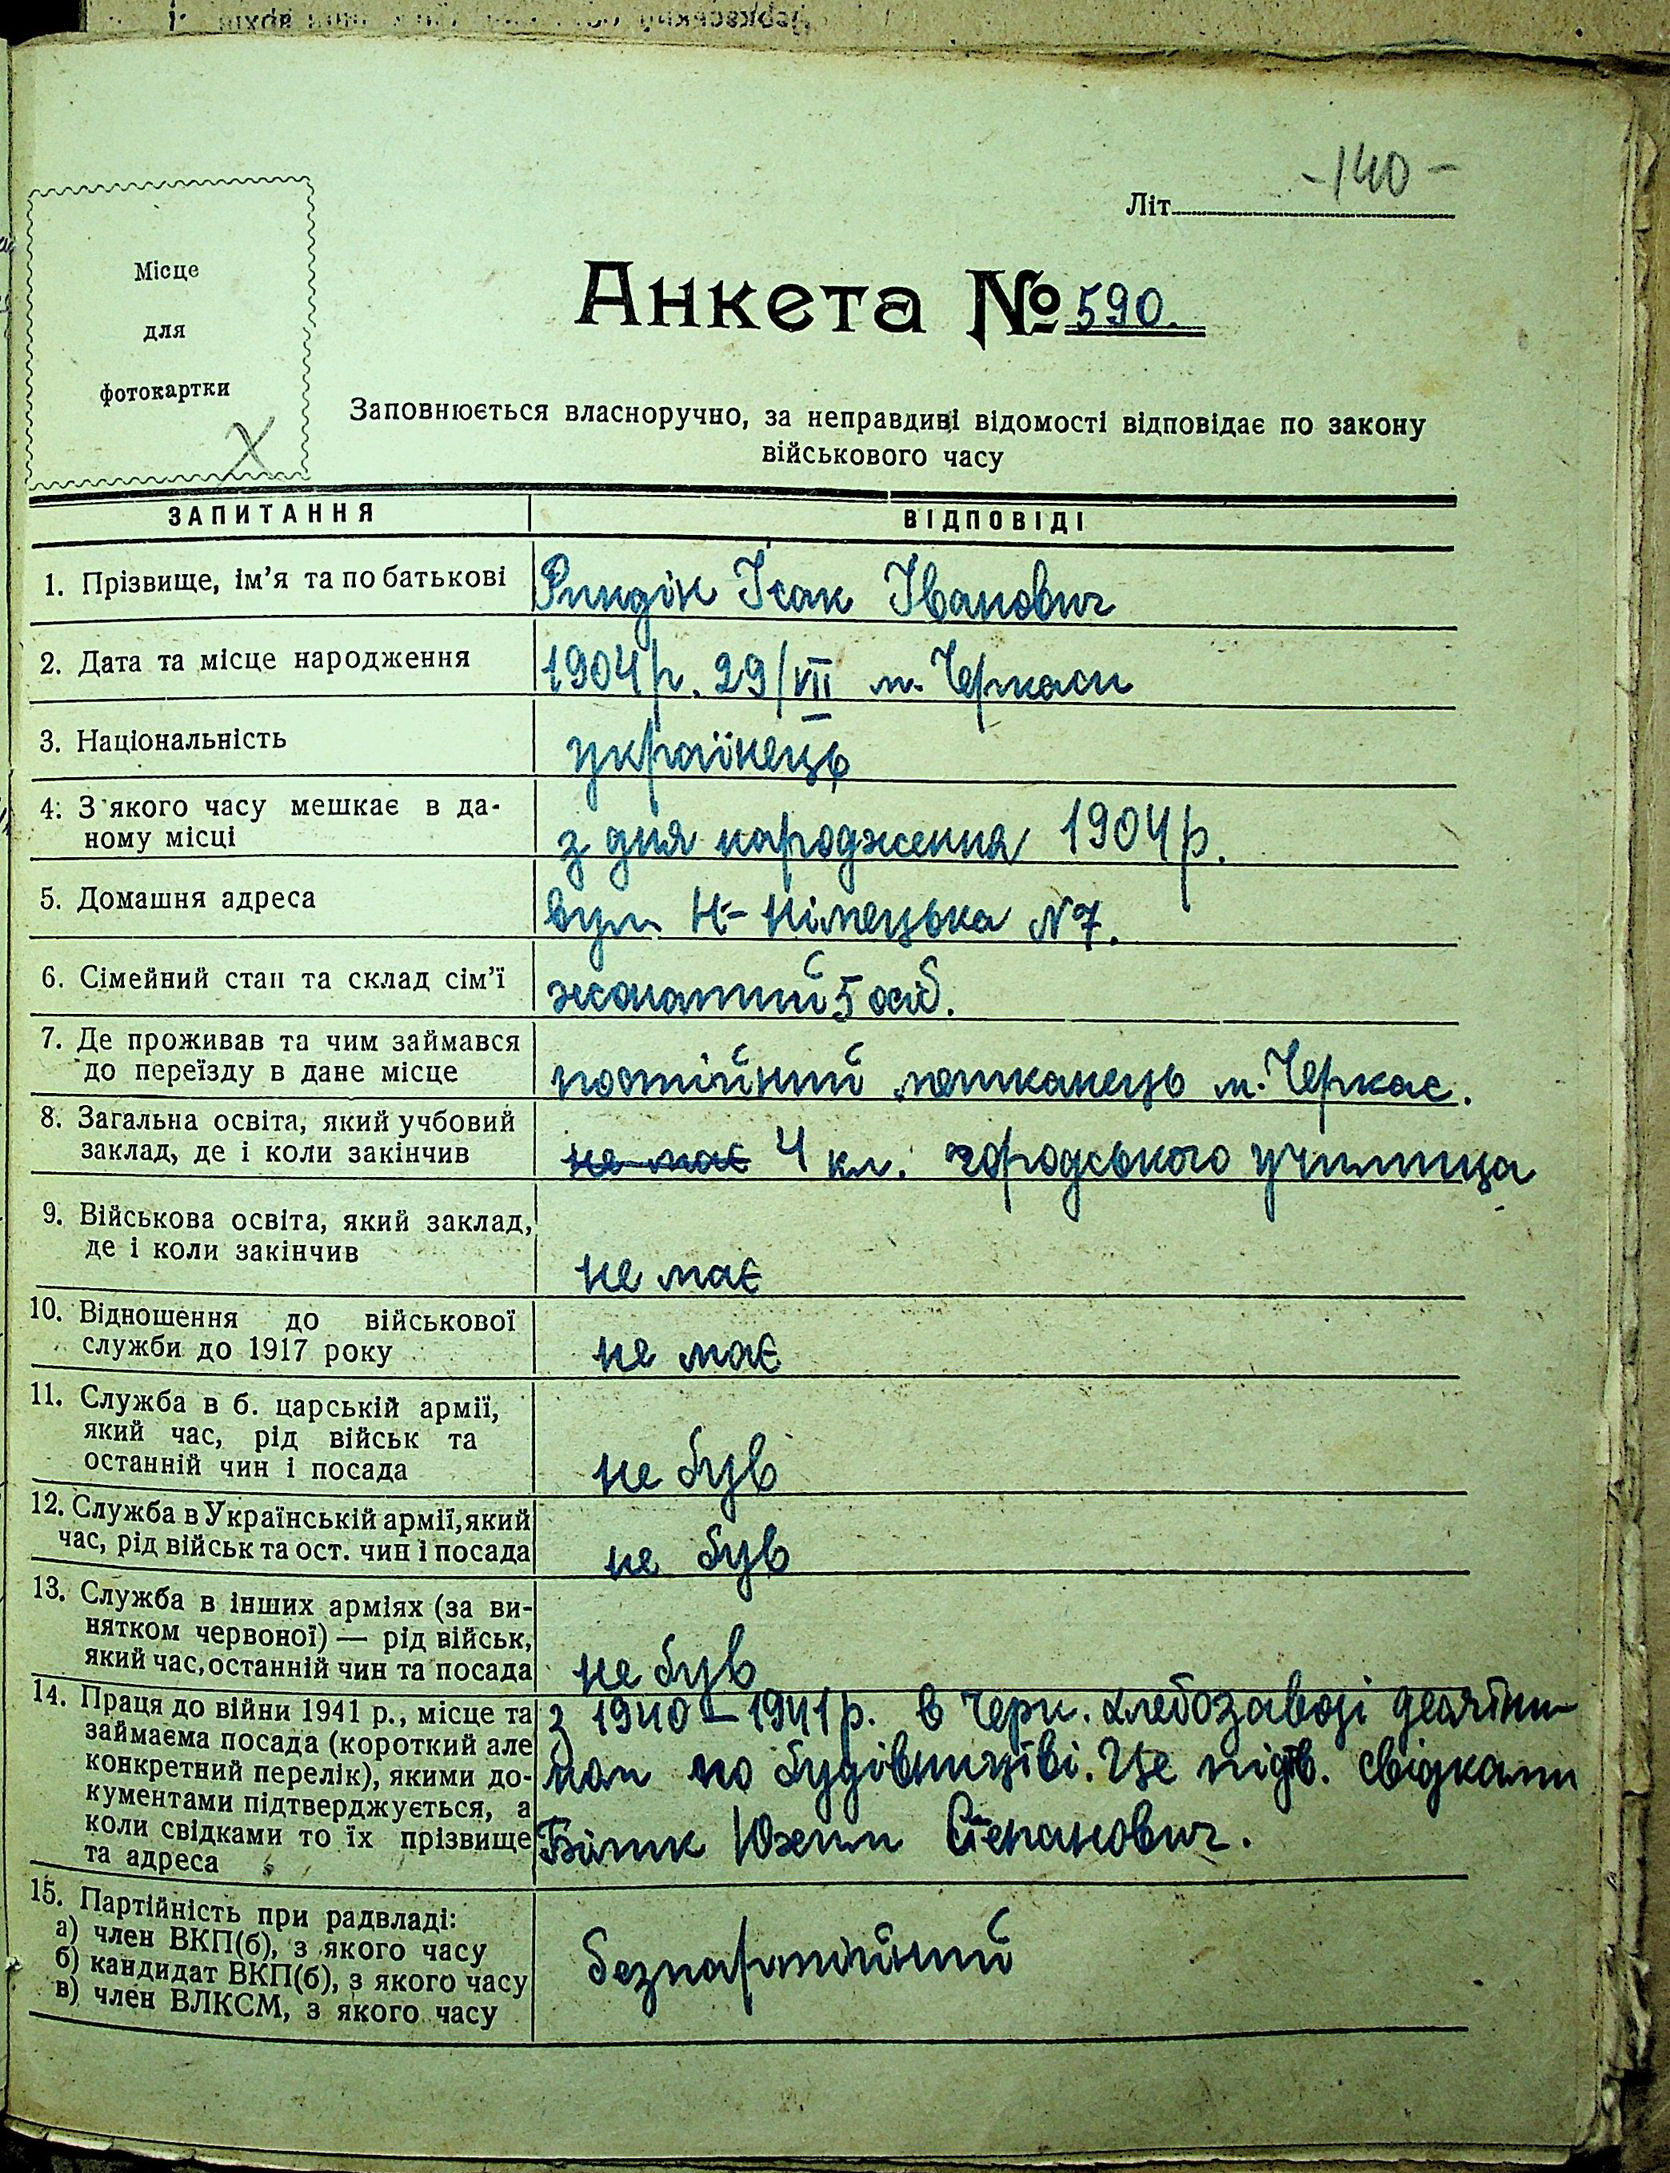 -140-
Літ.
Місце
для
фотокартки
X
Анкета № 590.
Заповнюється власноручно, за неправдиві відомості відповідає по закону
військового часу
ЗАПИТАННЯ ВІДПОВІДІ
1. Прізвище, ім'я та по батькові Риндік Ісак Іванович
2. Дата та місце народження 1904 р. 29/VII м. Черкаси
3. Національність українець
4. З якого часу мешкає в да-
ному місці з дня народження 1904 р.
5. Домашня адреса вул. Н-Німецька N 7.
6. Сімейний стан та склад сім'ї жонатий 5 осіб.
7. Де проживав та чим займався
до переїзду в дане місце постійний мешканець м. Черкас.
8. Загальна освіта, який учбовий
заклад, де і коли закінчив не має 4 кл. городського училища
9. Військова освіта, який заклад,
де і коли закінчив не має
10. Відношення до військової
служби до 1917 року не має
11. Служба в б. царській армії,
який час, рід військ та
останній чин і посада не був
12. Служба в Українській армії, який
час, рід військ та ост. чин і посада не був
13. Служба в інших арміях (за ви-
нятком червоної) — рід військ,
який час, останній чин та посада не був
14. Праця до війни 1941 р., місце та з 1940 – 1941 р. в Черк. хлебозаводі десятни-
займаема посада (короткий але
конкретний перелік), якими до- ком по будівництві. Це підтв. свідками
кументами підтверджується, а
коли свідками то їх прізвище Білик Юхим Степанович.
та адреса
15. Партійність при радвладі:
а) член ВКП(б), з якого часу безпартійний
б) кандидат ВКП(б), з якого часу
в) член ВЛКСМ, з якого часу